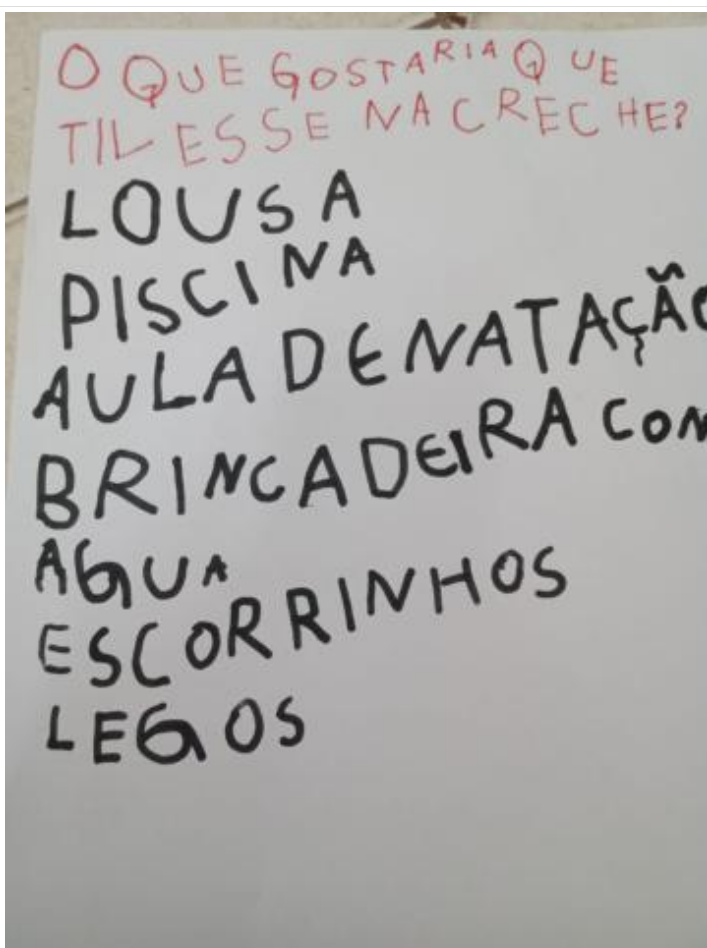 O QUE GOSTARIA QUE
TIVESSE NA CRECHE?
LOUSA
PISCINA
AULA DE NATAÇÃO
BRINCADEIRA COM
AGUA
ESCORRINHOS
LEGOS